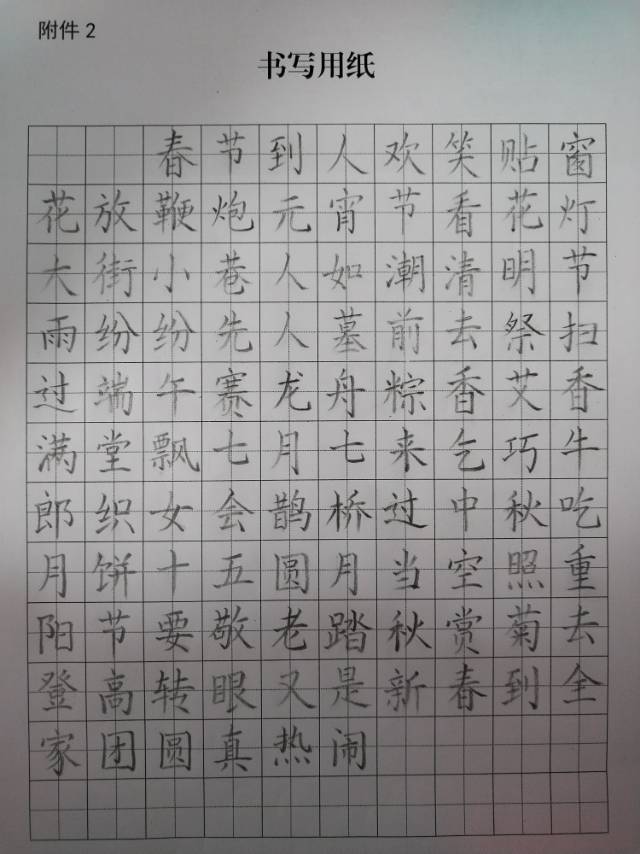 附件2
书写用纸
春节到人欢笑贴窗
花放鞭炮元宵节看花灯
大街小巷人如潮清明节
雨纷纷先人墓前去祭扫
过端午赛龙舟粽香艾香
满堂飘七月七来乞巧牛
郎织女会鹊桥过中秋吃
月饼十五圆月当空照重
阳节要敬老踏秋赏菊去
登高转眼又是新春到全
家团圆真热闹